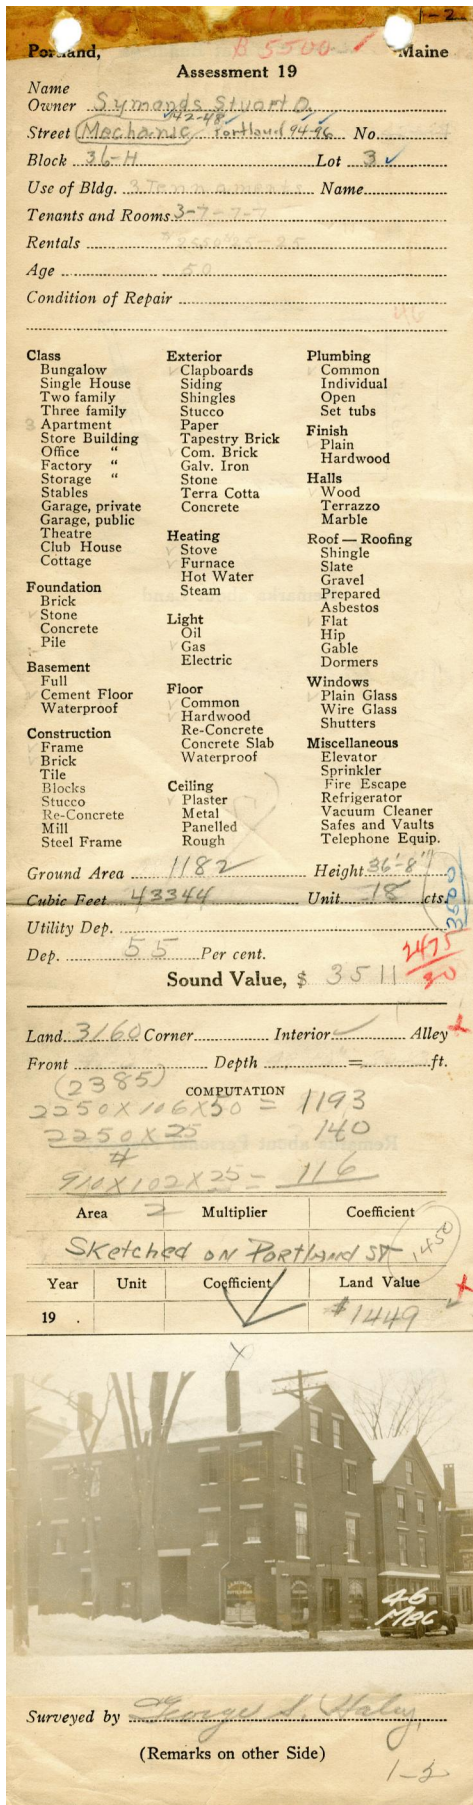 1-2
$ 5500
Portland, Maine
Assessment 19
Name
Owner Symonds Stuart O.
42-48
Street Mechanic Portland 94-96 No.
Block 36-H Lot 3
Use of Bldg. 3 Tennaments Name
Tenants and Rooms 3-7-7-7
Rentals 25-25
Age 50
Condition of Repair
46
Class
Bungalow
Single House
Two family
Three family
3 Apartment
Store Building
Office "
Factory "
Storage "
Stables
Garage, private
Garage, public
Theatre
Club House
Cottage
Foundation
Brick
Stone
Concrete
Pile
Basement
Full
Cement Floor
Waterproof
Construction
Frame
Brick
Tile
Blocks
Stucco
Re-Concrete
Mill
Steel Frame
Exterior
Clapboards
Siding
Shingles
Stucco
Paper
Tapestry Brick
Com. Brick
Galv. Iron
Stone
Terra Cotta
Concrete
Heating
Stove
Furnace
Hot Water
Steam
Light
Oil
Gas
Electric
Floor
Common
Hardwood
Re-Concrete
Concrete Slab
Waterproof
Ceiling
Plaster
Metal
Panelled
Rough
Plumbing
Common
Individual
Open
Set tubs
Finish
Plain
Hardwood
Halls
Wood
Terrazzo
Marble
Roof — Roofing
Shingle
Slate
Gravel
Prepared
Asbestos
Flat
Hip
Gable
Dormers
Windows
Plain Glass
Wire Glass
Shutters
Miscellaneous
Elevator
Sprinkler
Fire Escape
Refrigerator
Vacuum Cleaner
Safes and Vaults
Telephone Equip.
Ground Area 1182 Height 36'-8"
Cubic Feet 43344 Unit 18 cts.
3500
Utility Dep.
Dep. 55 Per cent.
2475
30
Sound Value, $ 3511
Land 3160 Corner Interior Alley
Front Depth = ft.
(2385)
COMPUTATION
2250 X 106 X 50 = 1193
2250 X 25 140
4
910 X 102 X 25 = 116
2
Area Multiplier Coefficient
Sketched on Portland St
1450
Year Unit Coefficient Land Value
19 . $1449
X
46
Mec
Surveyed by George S. Haley,
(Remarks on other Side)
1-5